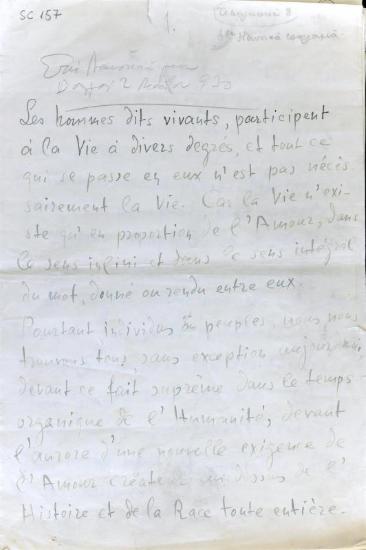 SC 157
1.
Les hommes dits vivants, participent
à la Vie à divers degrés, et tout ce
qui se passe en eux n'est pas néces
sairement la Vie. Car la Vie n'exi-
ste qu'en proportion de l'Amour, dans
le sens infini et dans le sens intégral
du mot, donné ou rendu entre eux.
Pourtant individus ou peuples, nous nous
trouvons tous, sans exception aujourd'hui,
devant ce fait suprême dans le temps
organique de l'Humanité, devant
l'aurore d'une nouvelle exigence de
l'Amour créateur, au dessus de l'
Histoire et de la Race toute entière.